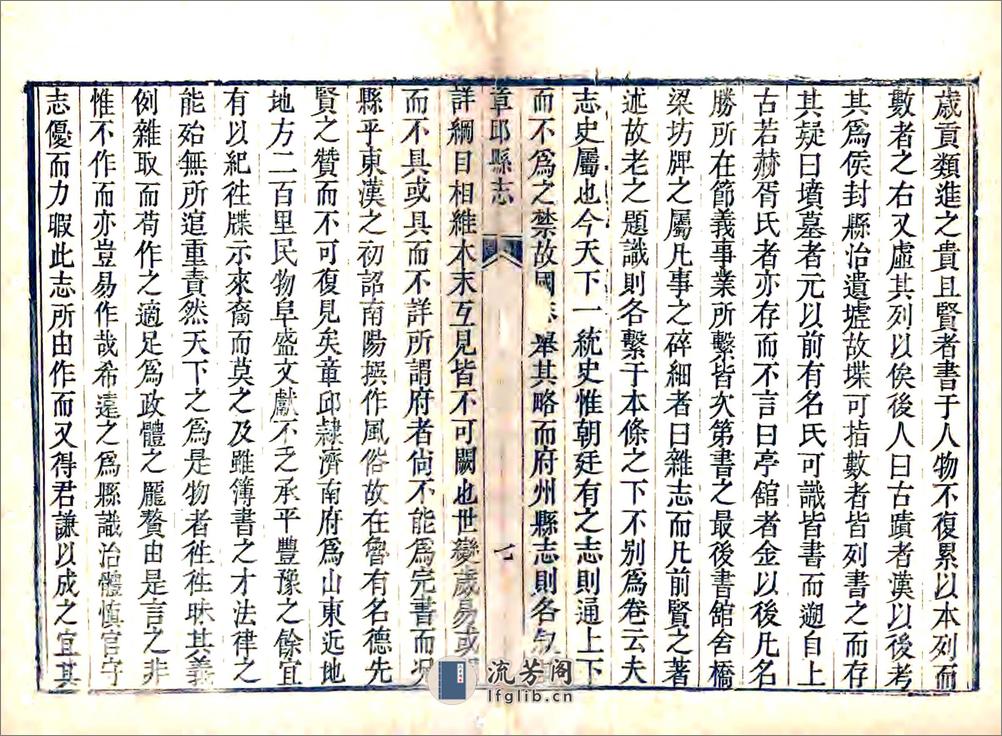 歲貢類進之貴且賢者書于人物不復累以本列而
數者之右又虛其列以俟後人曰古蹟者漢以後考
其爲侯封縣治遺墟故堞可指數者皆列書之而存
其疑曰墳墓者元以前有名氏可識皆書而遡自上
古若赫胥氏者亦存而不言曰亭舘者金以後凡名
勝所在節義事業所繫皆次第書之最後書舘舍橋
梁坊牌之屬凡事之碎細者曰雜志而凡前賢之著
述故老之題識則各繫于本條之下不别爲卷云夫
志史屬也今天下一統史惟朝廷有之志則通上下
而不爲之禁故國 舉其略而府州縣志則各
章邱縣志
七
詳綱目相維本末互見皆不可闕也世變歲易或
而不具或具而不詳所謂府者尙不能爲完書而况
縣乎東漢之初詔南陽撰作風俗故在魯有名德先
賢之贊而不可復見矣章邱隷濟南府爲山東近地
地方二百里民物阜盛文獻不乏承平豐豫之餘宜
有以紀徃牒示來裔而莫之及雖簿書之才法律之
能殆無所逭重責然天下之爲是物者徃徃昧其義
例雜取而苟作之適足爲政體之龐贅由是言之非
惟不作而亦豈易作哉希遠之爲縣識治體慎官守
志優而力暇此志所由作而又得君謙以成之宜其
流芳阁
lfglib.cn